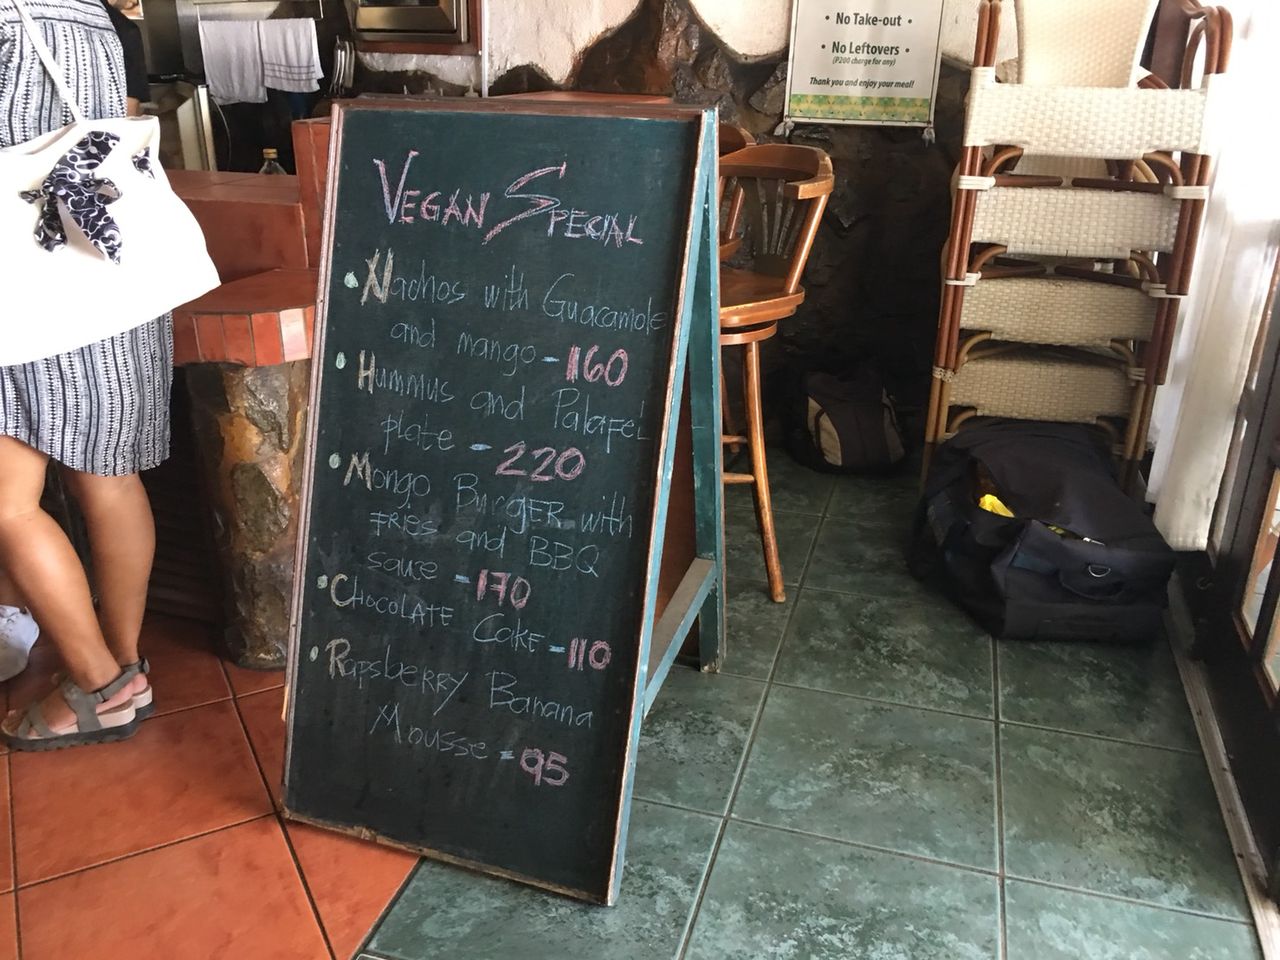 VEGAN SPECIAL
• Nachos with Guacamole
and mango - 160
• Hummus and Palafel
plate - 220
• Mongo Burger with
FRIES and BBQ
sauce - 170
• CHOCOLATE CAKE - 110
• RapsberRY Banana
Mousse - 95
• No Take-out •
• No Leftovers •
(P200 charge for any)
Thank you and enjoy your meal!